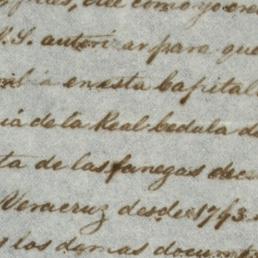 que como yo
V.S. autorizar para que
en esta Capital
ia de la Real Cedula de
ta de las fanegas de
Veracruz desde 1743
los demas docume